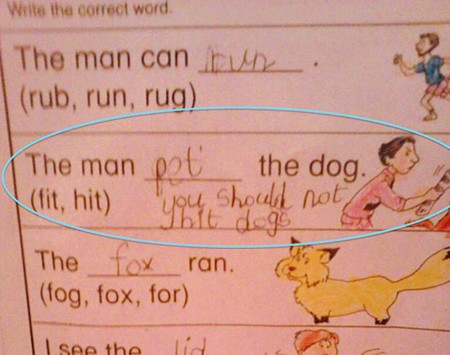 Write the correct word.
The man can run .
(rub, run, rug)
The man pet the dog.
(fit, hit) you should not
hit dogs
The fox ran.
(fog, fox, for)
I see the lid